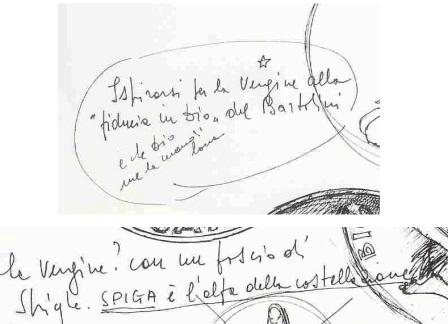 Ispirarsi per la Vergine alla
"fiducia in Dio" del Bartolini
e che Dio
me la mandi
buona
la Vergine? con un fascio di
Spighe. SPIGA è l'alfa della costellazione